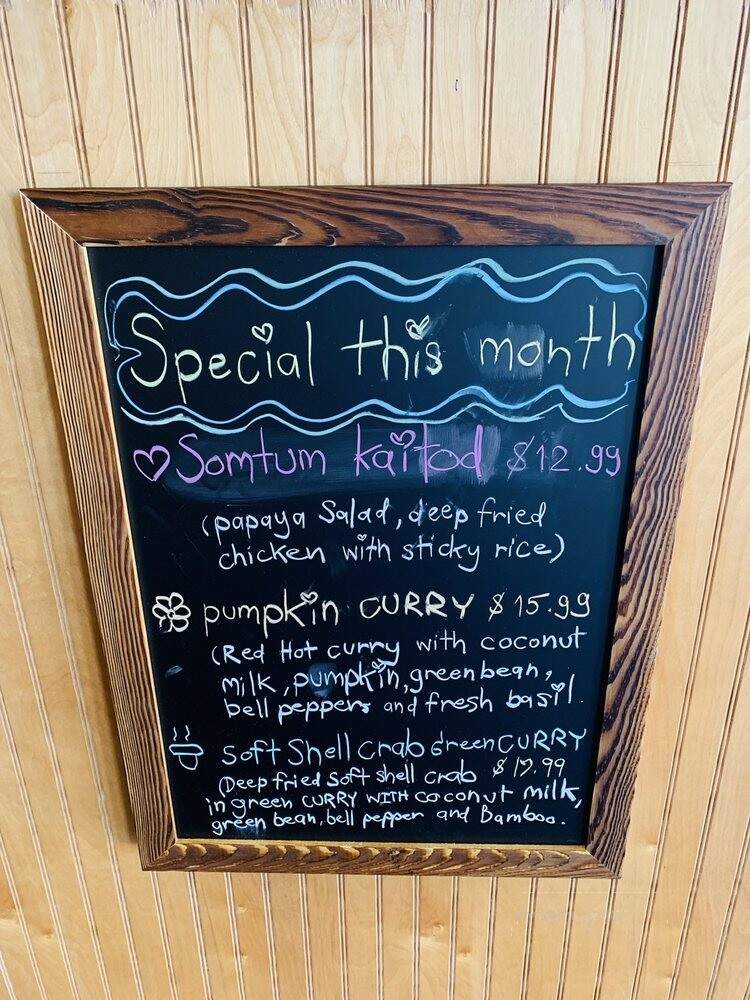 Special this month
Somtum kaitod $12.99
(papaya Salad, deep fried
chicken with sticky rice)
pumpkin CURRY $15.99
(Red Hot curry with coconut
milk, pumpkin, green bean,
bell peppers and fresh basil.
Soft Shell Crab Green CURRY
(Deep fried Soft shell crab
in green CURRY WITH coconut milk,
green bean, bell pepper and Bamboo.